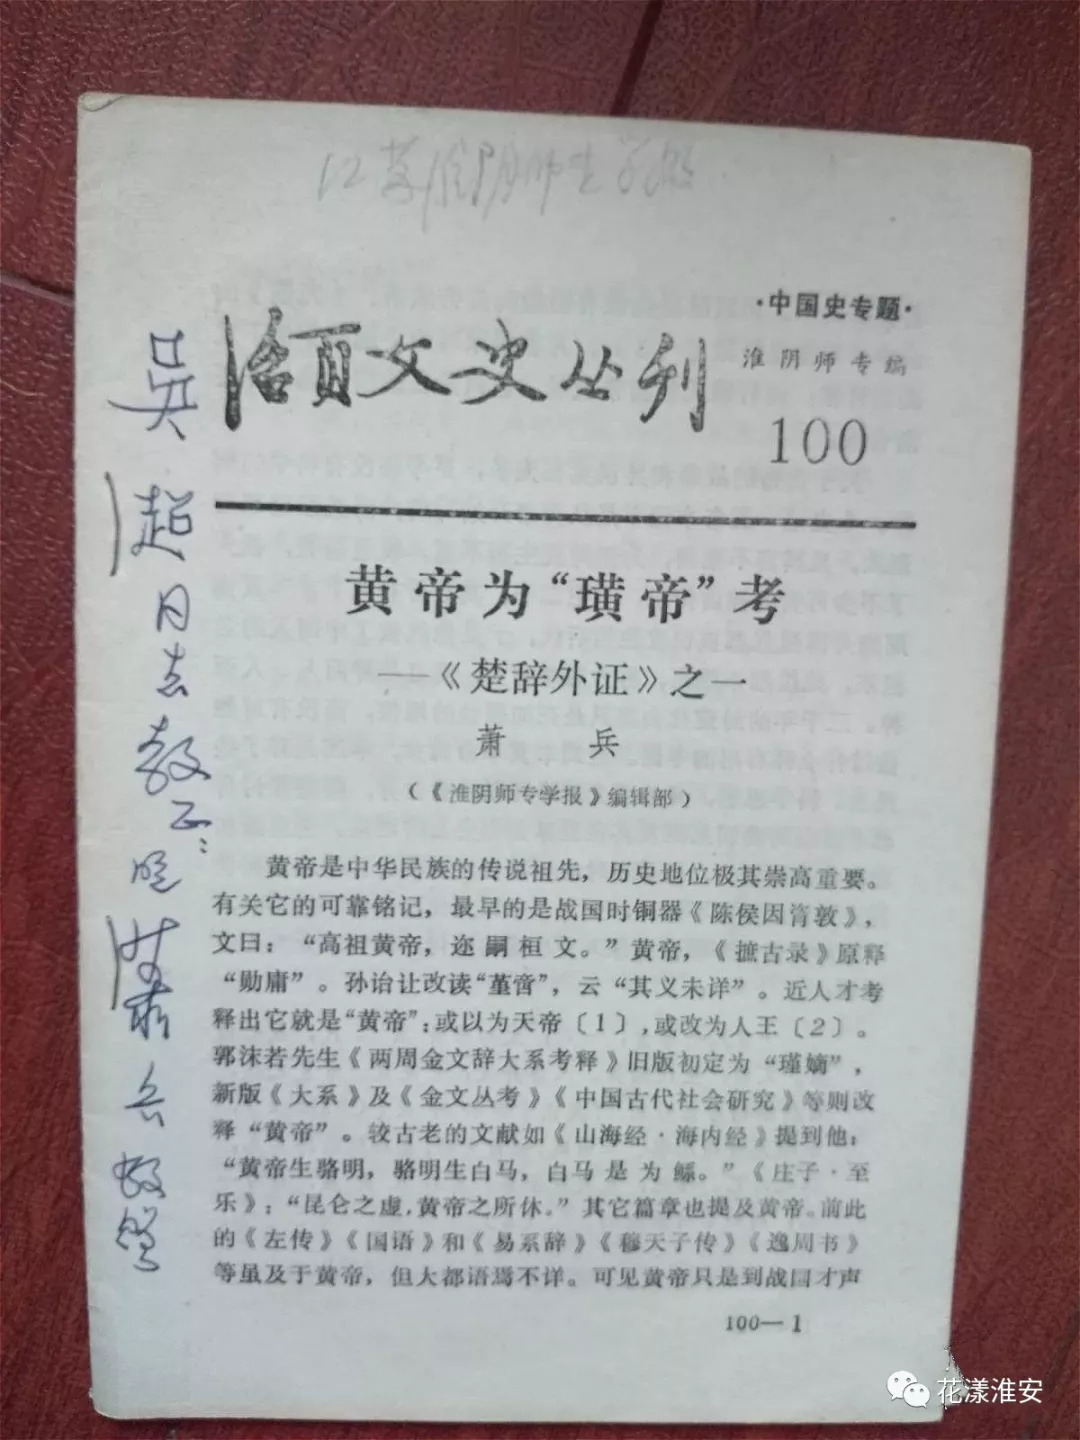 活页文史丛刊
·中国史专题·
淮阴师专编
100
黄帝为“璜帝”考
——《楚辞外证》之一
萧 兵
（《淮阴师专学报》编辑部）
黄帝是中华民族的传说祖先，历史地位极其崇高重要。
有关它的可靠铭记，最早的是战国时铜器《陈侯因𬯎敦》，
文曰：“高祖黄帝，迩嗣桓文。”黄帝，《摭古录》原释
“勋庸”。孙诒让改读“堇啻”，云“其义未详”。近人才考
释出它就是“黄帝”；或以为天帝〔1〕，或改为人王〔2〕。
郭沫若先生《两周金文辞大系考释》旧版初定为“瑾嫡”，
新版《大系》及《金文丛考》《中国古代社会研究》等则改
释“黄帝”。较古老的文献如《山海经·海内经》提到他：
“黄帝生骆明，骆明生白马，白马是为鲧。”《庄子·至
乐》：“昆仑之虚，黄帝之所休。”其它篇章也提及黄帝。前此
的《左传》《国语》和《易系辞》《穆天子传》《逸周书》
等虽及于黄帝，但大都语焉不详。可见黄帝只是到战国才声
100—1
吴超同志教正：
萧兵敬赠
花漾淮安